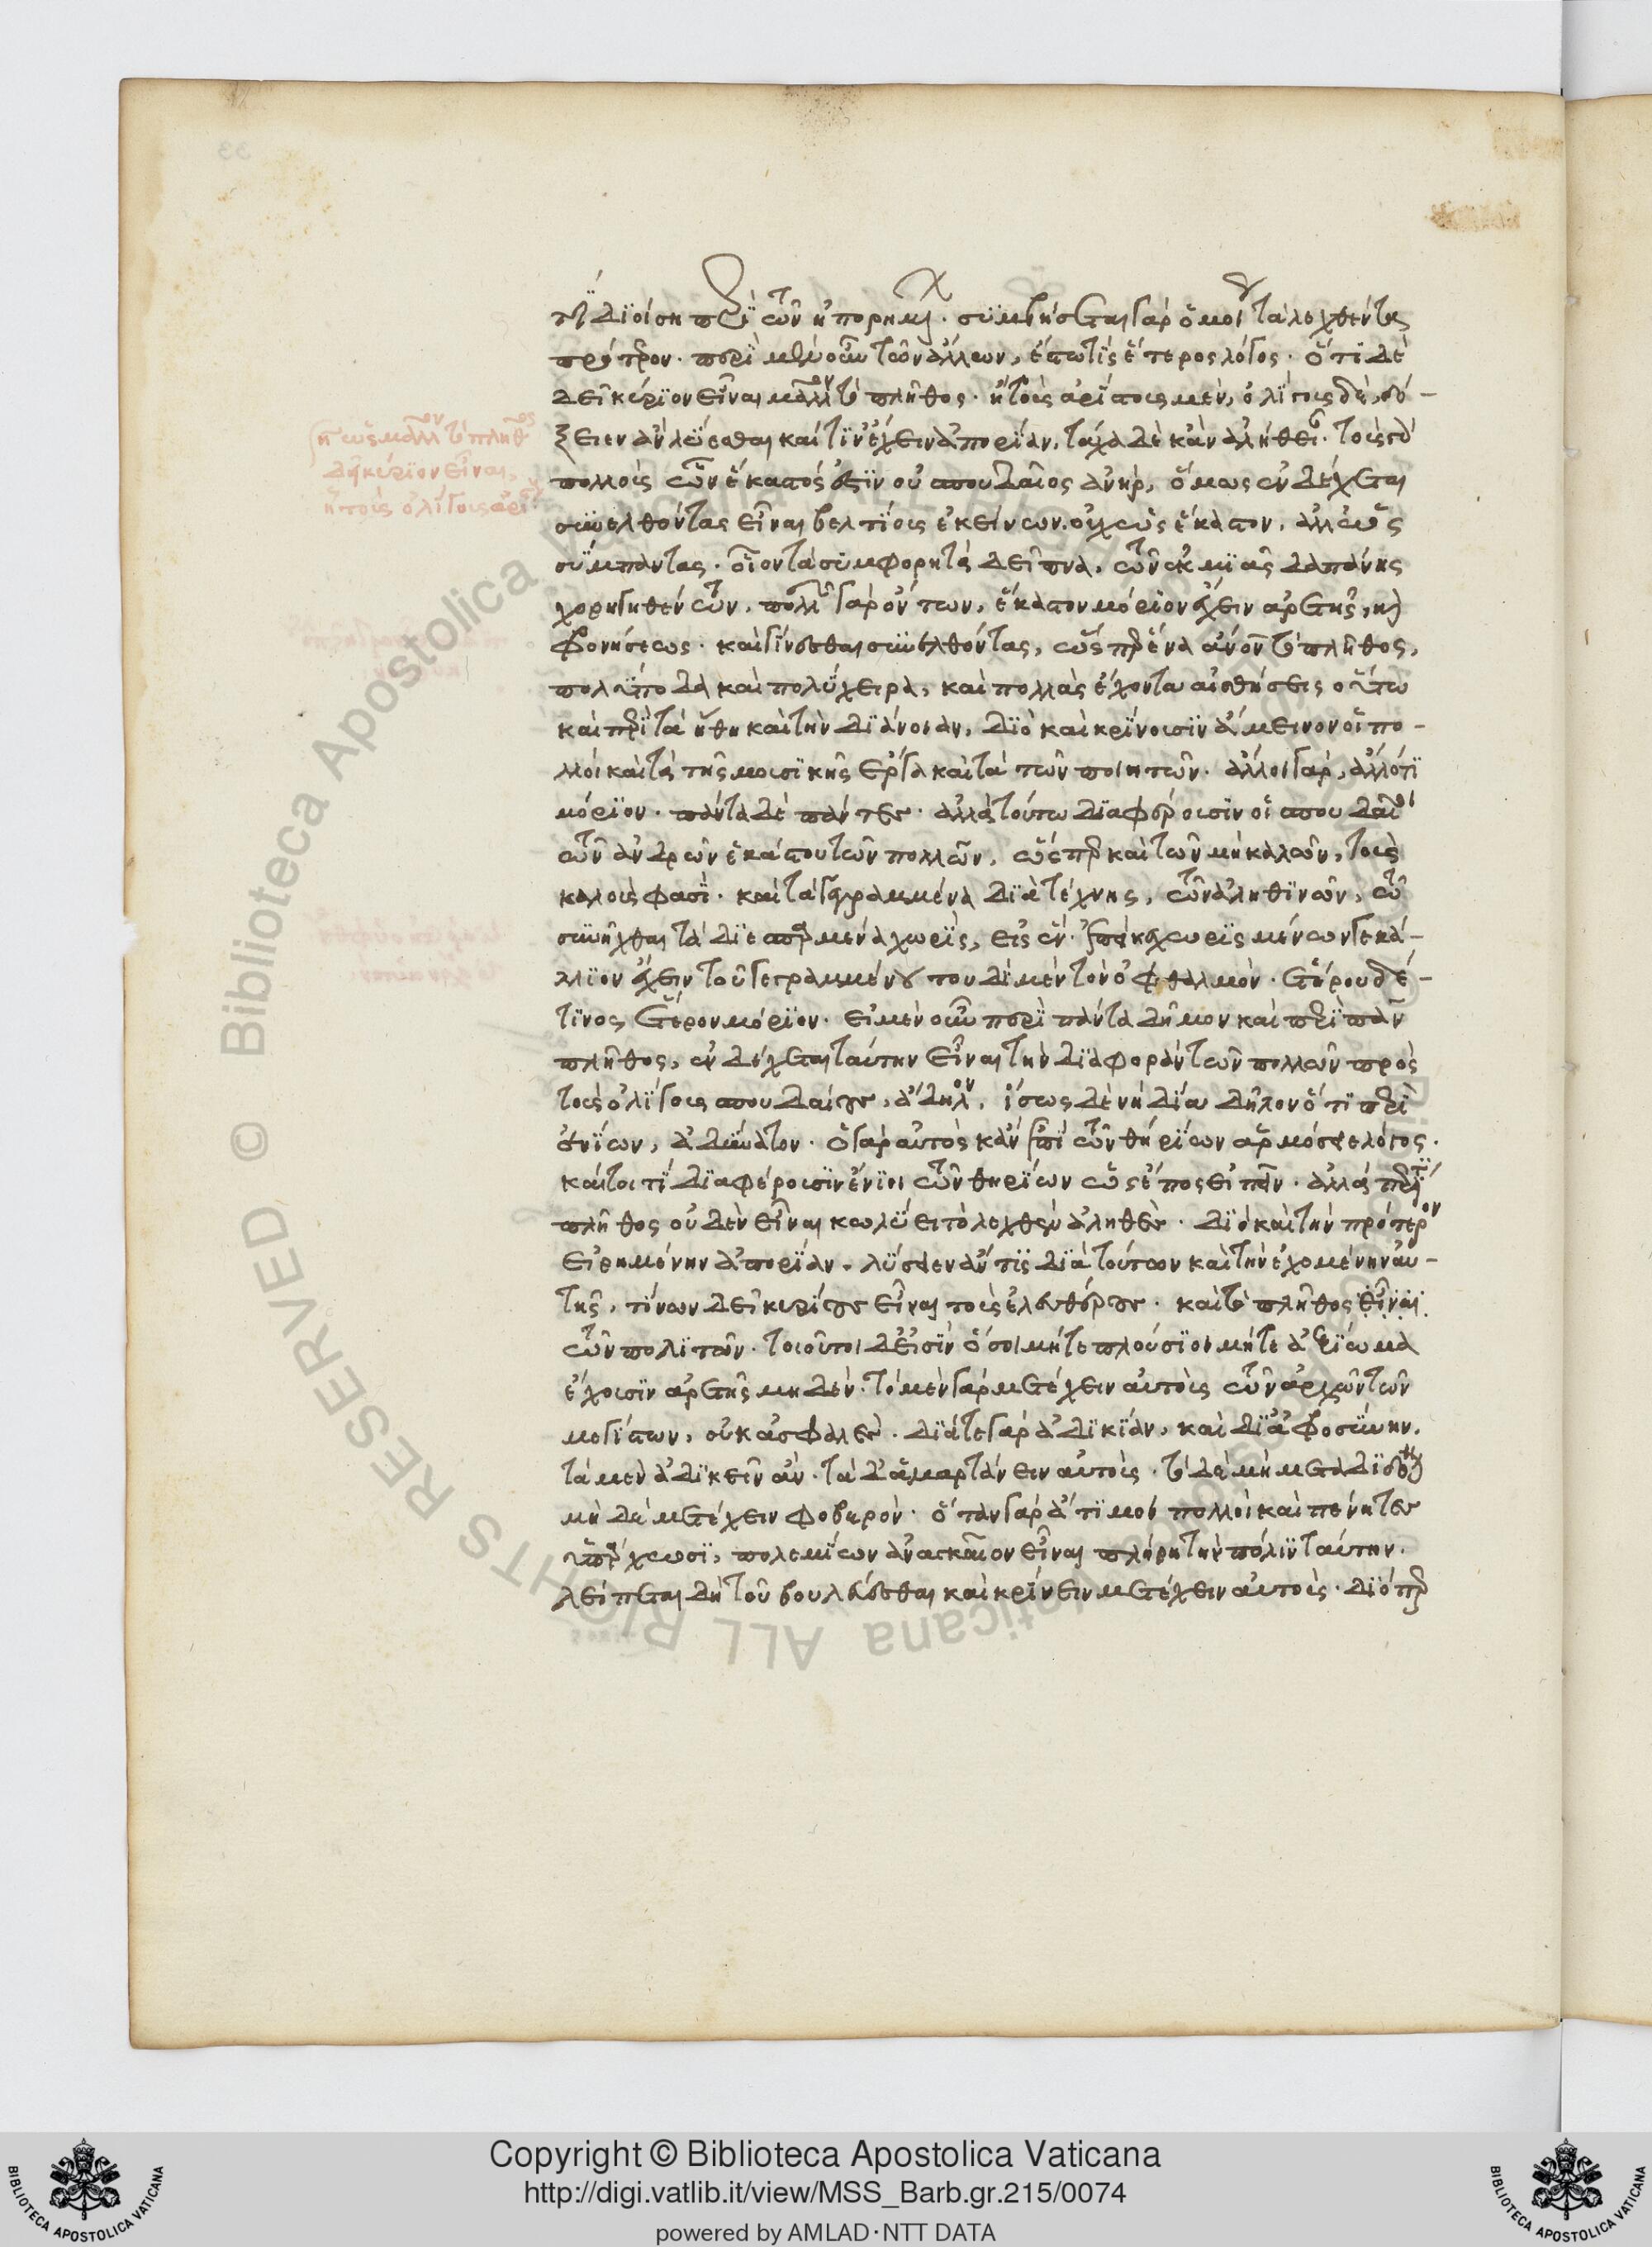 τί διοίσει περὶ τῶν ἠπορημένων. συμβήσεται γὰρ ὅμοια τὰ λεχθέντα
πρότερον. περὶ μὲν οὖν τῶν ἄλλων, ἔστω τίς ἕτερος λόγος. ὅτι δὲ
δεῖ κύριον εἶναι μᾶλλον τὸ πλῆθος. ἢ τοὺς ἀρίστους μὲν, ὀλίγους δὲ, δό-
ξειεν ἂν λύεσθαι καί τιν' ἔχειν ἀπορίαν, τάχα δὲ κἂν ἀλήθειαν. τοὺς γὰρ
πολλοὺς ὧν ἕκαστός ἐστιν οὐ σπουδαῖος ἀνὴρ, ὅμως ἐνδέχεται
συνελθόντας εἶναι βελτίους ἐκείνων. οὐχ ὡς ἕκαστον, ἀλλ' ὡς
σύμπαντας. οἷον τὰ συμφορητὰ δεῖπνα, τῶν ἐκ μιᾶς δαπάνης
χορηγηθέντων. πολλῶν γὰρ ὄντων, ἕκαστον μόριον ἔχειν ἀρετῆς, καὶ
φρονήσεως. καὶ γίνεσθαι συνελθόντας, ὥσπερ ἕνα ἄνον τὸ πλῆθος,
πολύποδα καὶ πολύχειρα, καὶ πολλὰς ἔχοντα αἰσθήσεις οὕτω
καὶ περὶ τὰ ἤθη καὶ τὴν διάνοιαν, διὸ καὶ κρίνουσιν ἄμεινον οἱ πο-
λλοὶ καὶ τὰ τῆς μουσικῆς ἔργα καὶ τὰ τῶν ποιητῶν. ἄλλοι γὰρ, ἄλλό τι
μόριον. πάντα δὲ πάντες. ἀλλὰ τούτω διαφέρουσιν οἱ σπουδαῖοι
τῶν ἀνδρῶν ἑκάστου τῶν πολλῶν, ὥσπερ καὶ τῶν μὴ καλῶν, τοὺς
καλούς φασι. καὶ τὰ γεγραμμένα διὰ τέχνης, τῶν ἀληθινῶν, τῶ
συνῆχθαι τὰ διεσπαρμένα χωρὶς, εἰς ἕν. ἐπεὶ κεχωρισμένων γε κά-
λλιον ἔχειν τοῦ γεγραμμένου τουδὶ μὲν τὸν ὀφθαλμὸν. ἑτέρου δέ
τινος, ἕτερον μόριον. εἰ μὲν οὖν περὶ πάντα δῆμον καὶ περὶ πᾶν
πλῆθος, ἐνδέχεται ταύτην εἶναι τὴν διαφορὰν τῶν πολλῶν πρὸς
τοὺς ὀλίγους σπουδαίους, ἄδηλον. ἴσως δὲ νὴ δία δῆλον ὅτι περὶ
ἐνίων, ἀδύνατον. ὁ γὰρ αὐτὸς κἂν ἐπὶ τῶν θηρίων ἁρμόσειε λόγος.
καίτοι τί διαφέρουσιν ἔνιοι τῶν θηρίων ὡς ἔπος εἰπεῖν. ἀλλὰ περί τι
πλῆθος οὐδὲν εἶναι κωλύει τὸ λεχθὲν ἀληθές. διὸ καὶ τὴν πρότερον
εἰρημένην ἀπορίαν. λύσειεν ἄν τις διὰ τούτων καὶ τὴν ἐχομένην αὐ-
τῆς, τίνων δεῖ κυρίους εἶναι τοὺς ἐλευθέρους. καὶ τὸ πλῆθος εἶναι
τῶν πολιτῶν. τοιοῦτοι δέ εἰσιν ὅσοι μήτε πλούσιοι μήτε ἀξίωμα
ἔχουσιν ἀρετῆς μηδέν. τὸ μὲν γὰρ μετέχειν αὐτοὺς τῶν ἀρχῶν τῶν
μεγίστων, οὐκ ἀσφαλές. διά τε γὰρ ἀδικίαν, καὶ δι' ἀφροσύνην.
τὰ μὲν ἀδικεῖν ἂν. τὰ δ' ἁμαρτάνειν αὐτούς. τὸ δὲ μὴ μεταδιδόναι
μηδὲ μετέχειν φοβερόν. ὅταν γὰρ ἄτιμοι πολλοὶ καὶ πένητες
ὑπάρχωσι, πολεμίων ἀναγκαῖον εἶναι πλήρη τὴν πόλιν ταύτην.
λείπεται δὴ τοῦ βουλεύεσθαι καὶ κρίνειν μετέχειν αὐτούς. διόπερ
πῶς μᾶλλον τὸ πλῆθος
δεῖ κύριον εἶναι,
ἢ τοὺς ὀλίγους ἀρί
Biblioteca Apostolica Vaticana ALL RIGHTS RESERVED ©
Copyright © Biblioteca Apostolica Vaticana
http://digi.vatlib.it/view/MSS_Barb.gr.215/0074
powered by AMLAD·NTT DATA
BIBLIOTECA APOSTOLICA VATICANA
BIBLIOTECA APOSTOLICA VATICANA